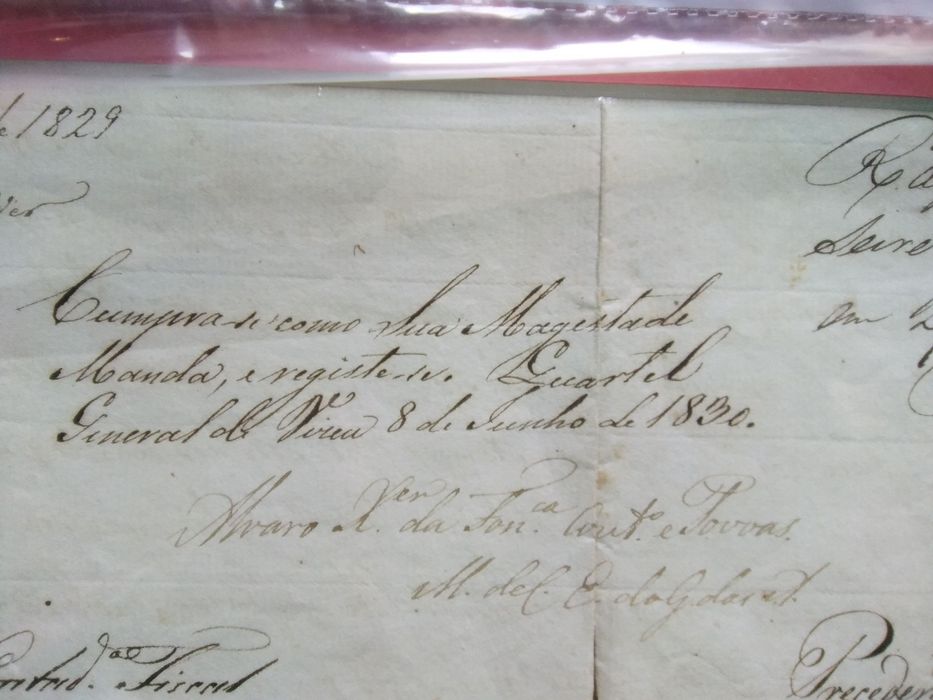 de 1829
R.
Cumpra-se como Sua Magestade
Manda, e registe-se. Quartel
General de Vizeu 8 de Junho de 1830.
Alvaro X.er da Fon.ca Cout.o e Povoas.
M. de C. E. do G.
Contad.as Fiscal